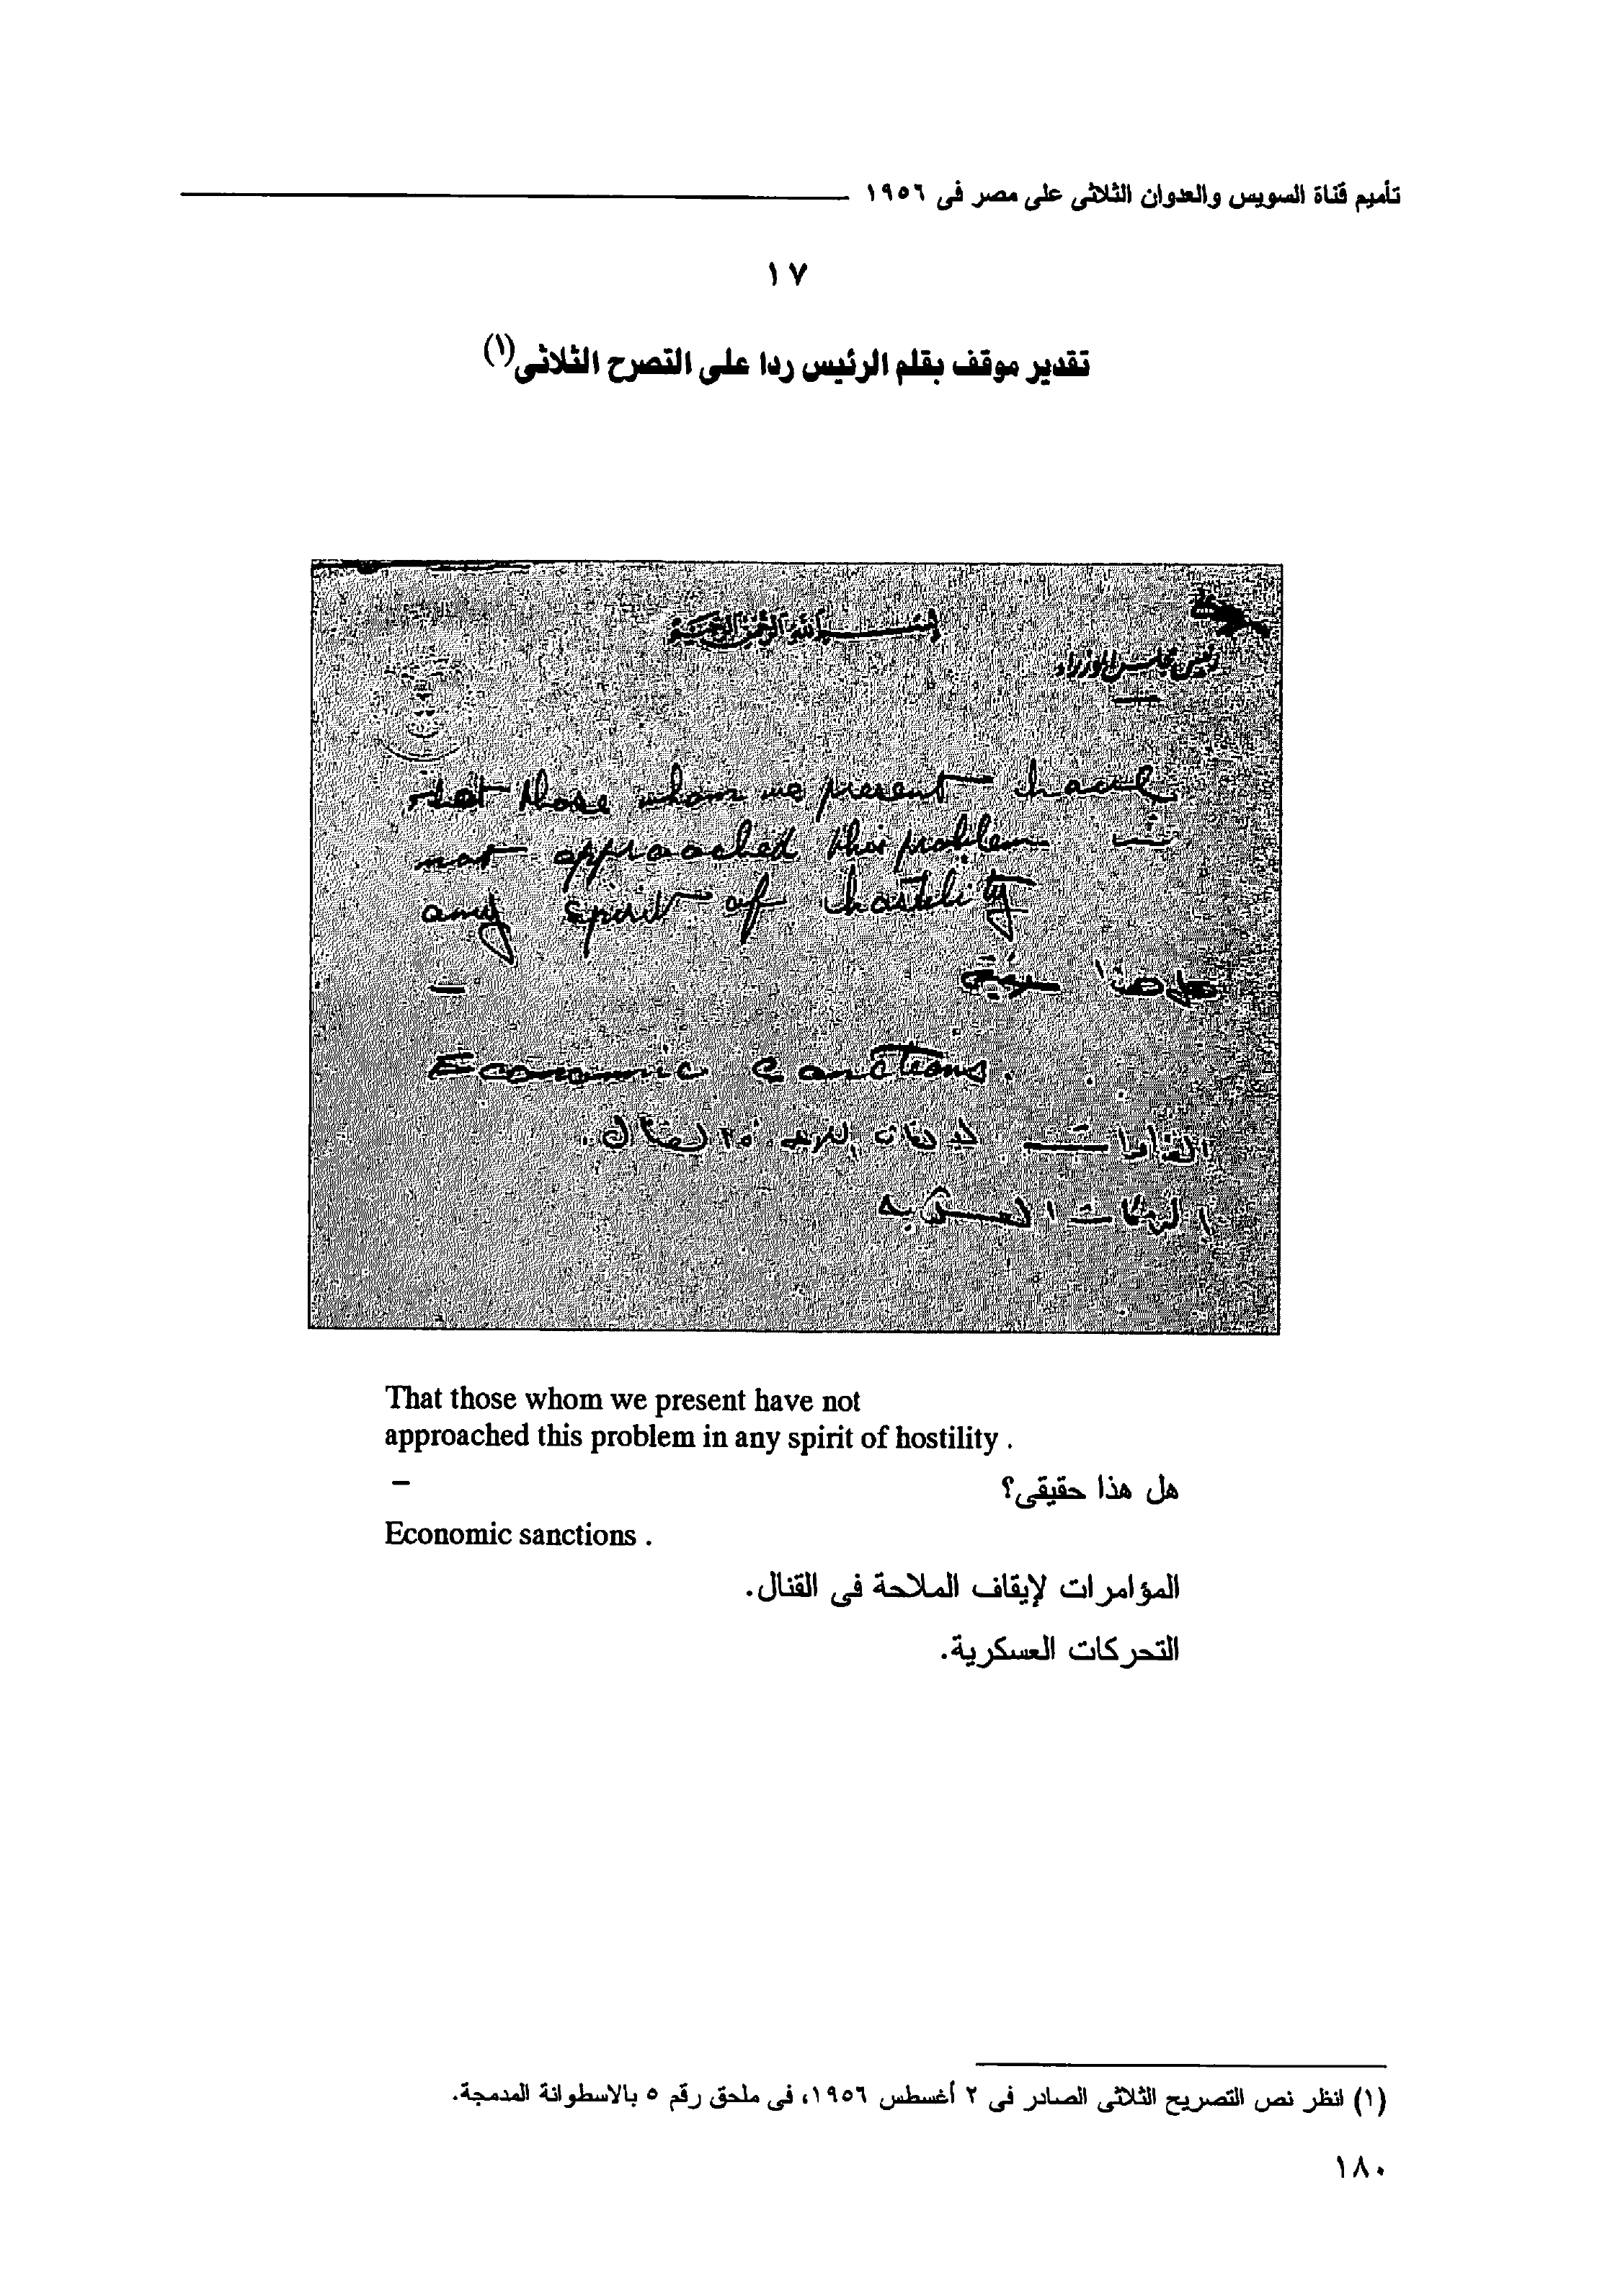 تأميم قناة السويس والعدوان الثلاثى على مصر فى ١٩٥٦
١٧
تقدير موقف بقلم الرئيس ردا على التصرح الثلاثى(١)
بسم الله الرحمن الرحيم
رئيس مجلس الوزراء
that those whom we present have
not approached this problem in
any spirit of hostility
هل هذا حقيقى
–
Economic sanctions.
المؤامرات لإيقاف الملاحة فى القنال.
التحركات العسكرية
That those whom we present have not
approached this problem in any spirit of hostility .
هل هذا حقيقى؟ –
Economic sanctions .
المؤامرات لإيقاف الملاحة فى القنال.
التحركات العسكرية.
(١) انظر نص التصريح الثلاثى الصادر فى ٢ أغسطس ١٩٥٦، فى ملحق رقم ٥ بالاسطوانة المدمجة.
١٨٠